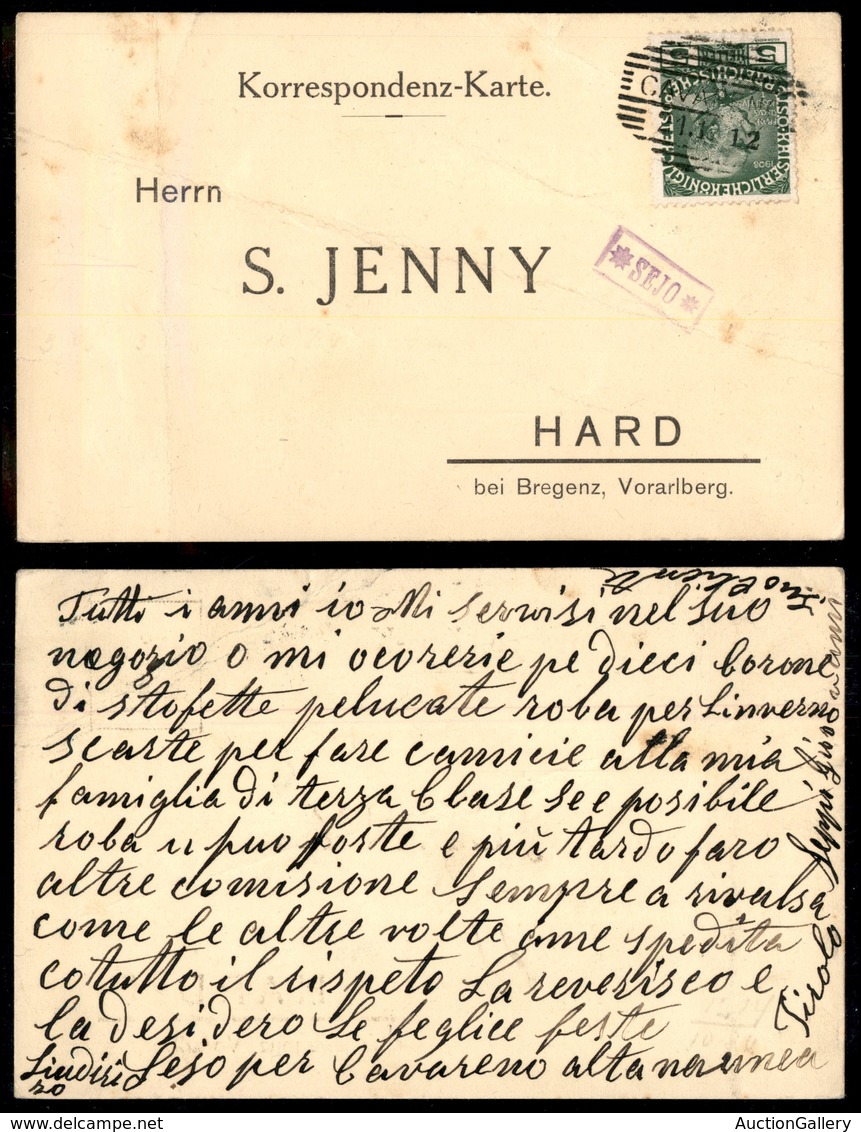 Korrespondenz-Karte.
Herrn
S. JENNY
HARD
bei Bregenz, Vorarlberg.
CAVA
1.1 12
5 5
KAISERLICHE KÖNIGL
1908
* SEJO *
Tutti i anni io Mi servvisi nel suo
negozio o mi ocorerie pe dieci Corone
di stofette pelucate roba per Linverno
scarte per fare camicie alla mia
famiglia di terza Clase se e posibile
roba u puo forte e più tardo faro
altre comisione sempre a rivalsa
come le altre volte ame spedita
cotutto il rispeto La reverisco e
la desidero le feglice feste
Lindiri Sejo per Cavareno alta naunnea
zo
Tirolo Seppi Giovvanni
Suo Cliente
AuctionGallery